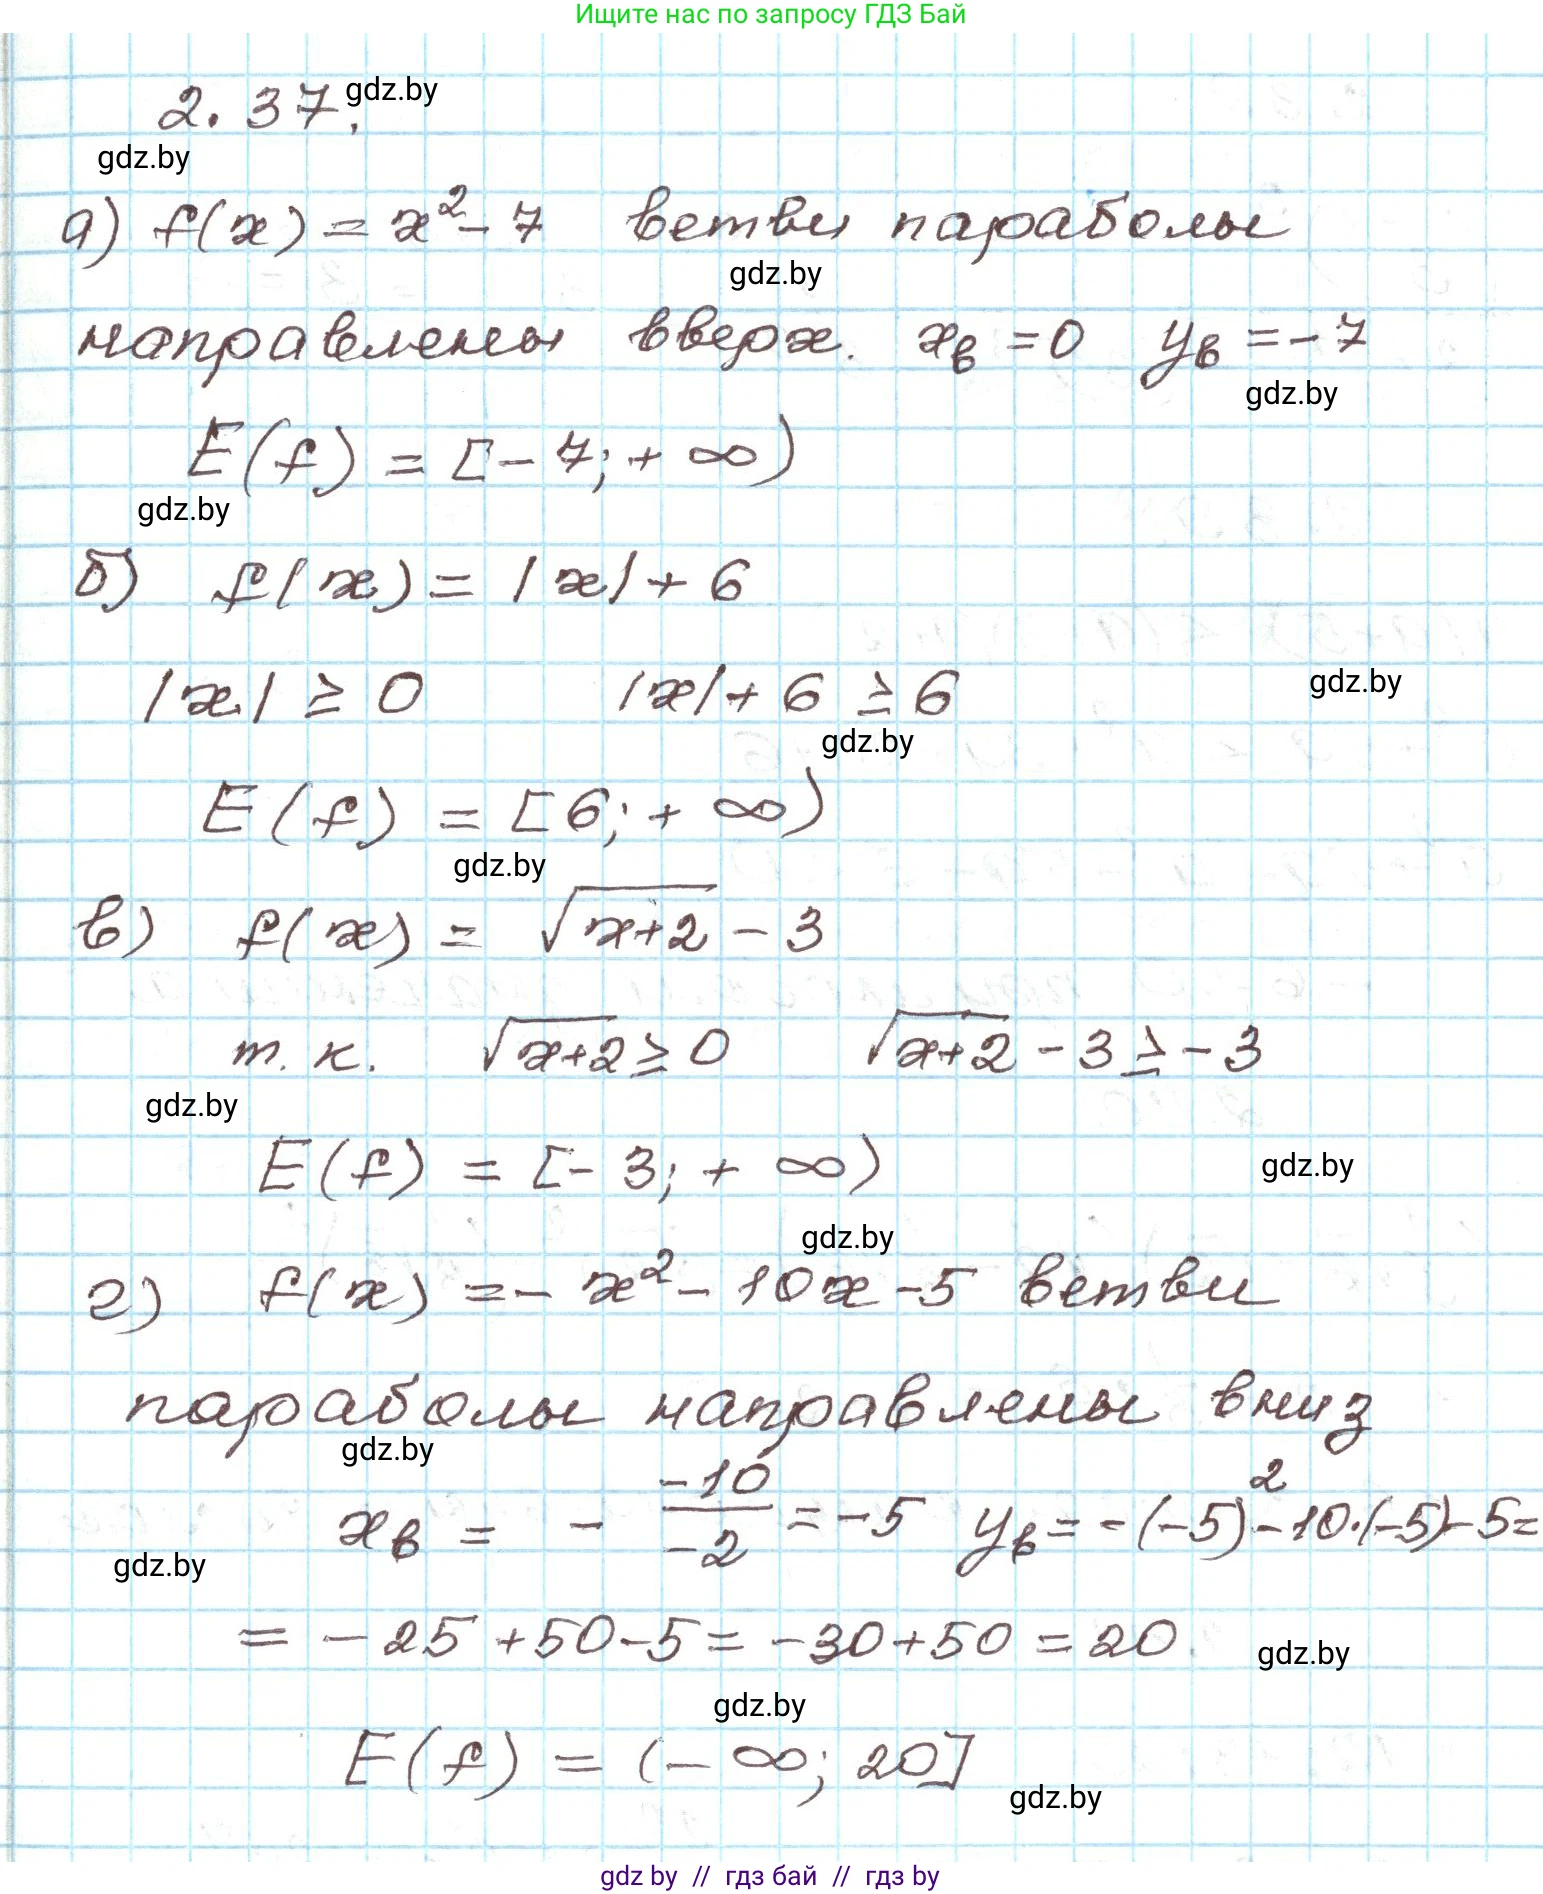 Ищите нас по запросу ГДЗ Бай
2.37. gdz.by
gdz.by
а) f(x) = x² - 7 ветви параболы
gdz.by
направлены вверх. xв = 0 yв = -7
gdz.by
E(f) = [-7; +∞)
gdz.by
б) f(x) = |x| + 6
|x| ≥ 0 |x| + 6 ≥ 6 gdz.by
gdz.by
E(f) = [6; +∞)
gdz.by
в) f(x) = √(x+2) - 3
т.к. √(x+2) ≥ 0 √(x+2) - 3 ≥ -3
gdz.by
E(f) = [-3; +∞) gdz.by
gdz.by
г) f(x) = -x² - 10x - 5 ветви
параболы направлены вниз
gdz.by
xв = - -10/-2 = -5 yв = -(-5)² - 10·(-5) - 5 =
gdz.by
= -25 + 50 - 5 = -30 + 50 = 20. gdz.by
gdz.by
E(f) = (-∞; 20]
gdz.by
gdz by // гдз бай // гдз by